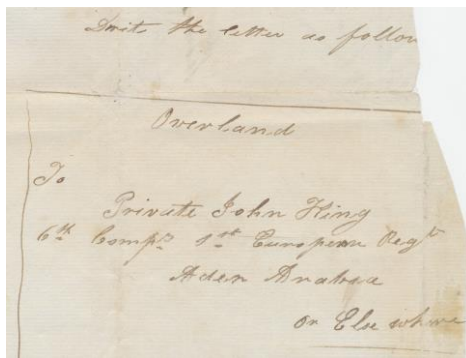 Dirit the letter as follow
Overland
To
Private John King
6th Compy 1st European Regt
Aden Arabia
or Else where